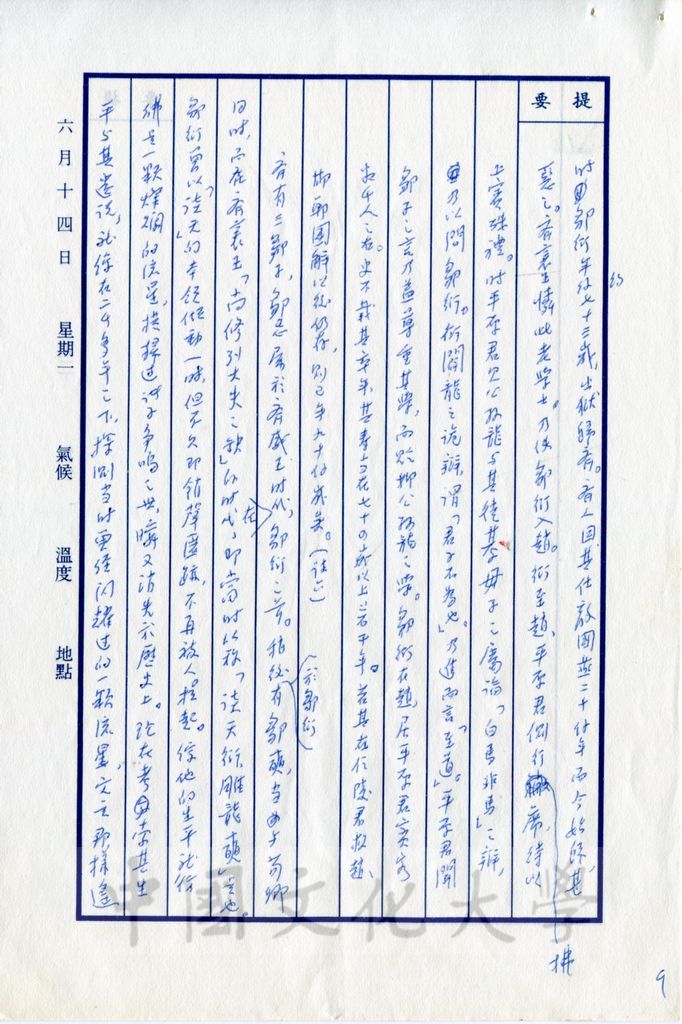 提要
時鄒衍年約七十三歲，出獄歸齊。齊人因其仕敵國燕二十餘年而今始歸，甚
惡之。齊襄王憐此老學士，乃使鄒衍入趙。衍至趙，平原君側行拂席，待以
上賓殊禮。時平原君見公孫龍與其徒綦毋子之屬論「白馬非馬」之辯，
乃以問鄒衍。衍聞龍之詭辯，謂「君子不為也」。乃進而言「至道」。平原君聞
鄒子之言乃益尊重其學，而於黜公孫龍之學。鄒衍在趙居平原君賓客
數千人之右。史不載其卒年，其壽當在七十四歲以上若干年。若其在信陵君救趙、
邯鄲圍解以後仍存，則已年九十餘歲矣。（註六）
齊有三鄒子，鄒忌屬於齊威王時代，鄒衍之前。稍後於鄒衍有鄒奭，當與荀卿
同時，而在齊襄王「尚修列大夫之缺」的時代，即當時所稱「談天衍，雕龍奭」是也。
鄒衍曾以「談天」的本領傾動一時，但不久即銷聲匿跡，不再被人提起。綜他的生平就彷
彿是一顆燦爛的流星，橫掃過諸子爭鳴之世，瞬又消失於歷史上。現在考索其生
平與其遺說，就像在二千多年之下，探測當時曾經閃耀過的一顆流星，究竟那樣遙
六月十四日
星期一
氣候
溫度
地點
中國文化大學
9